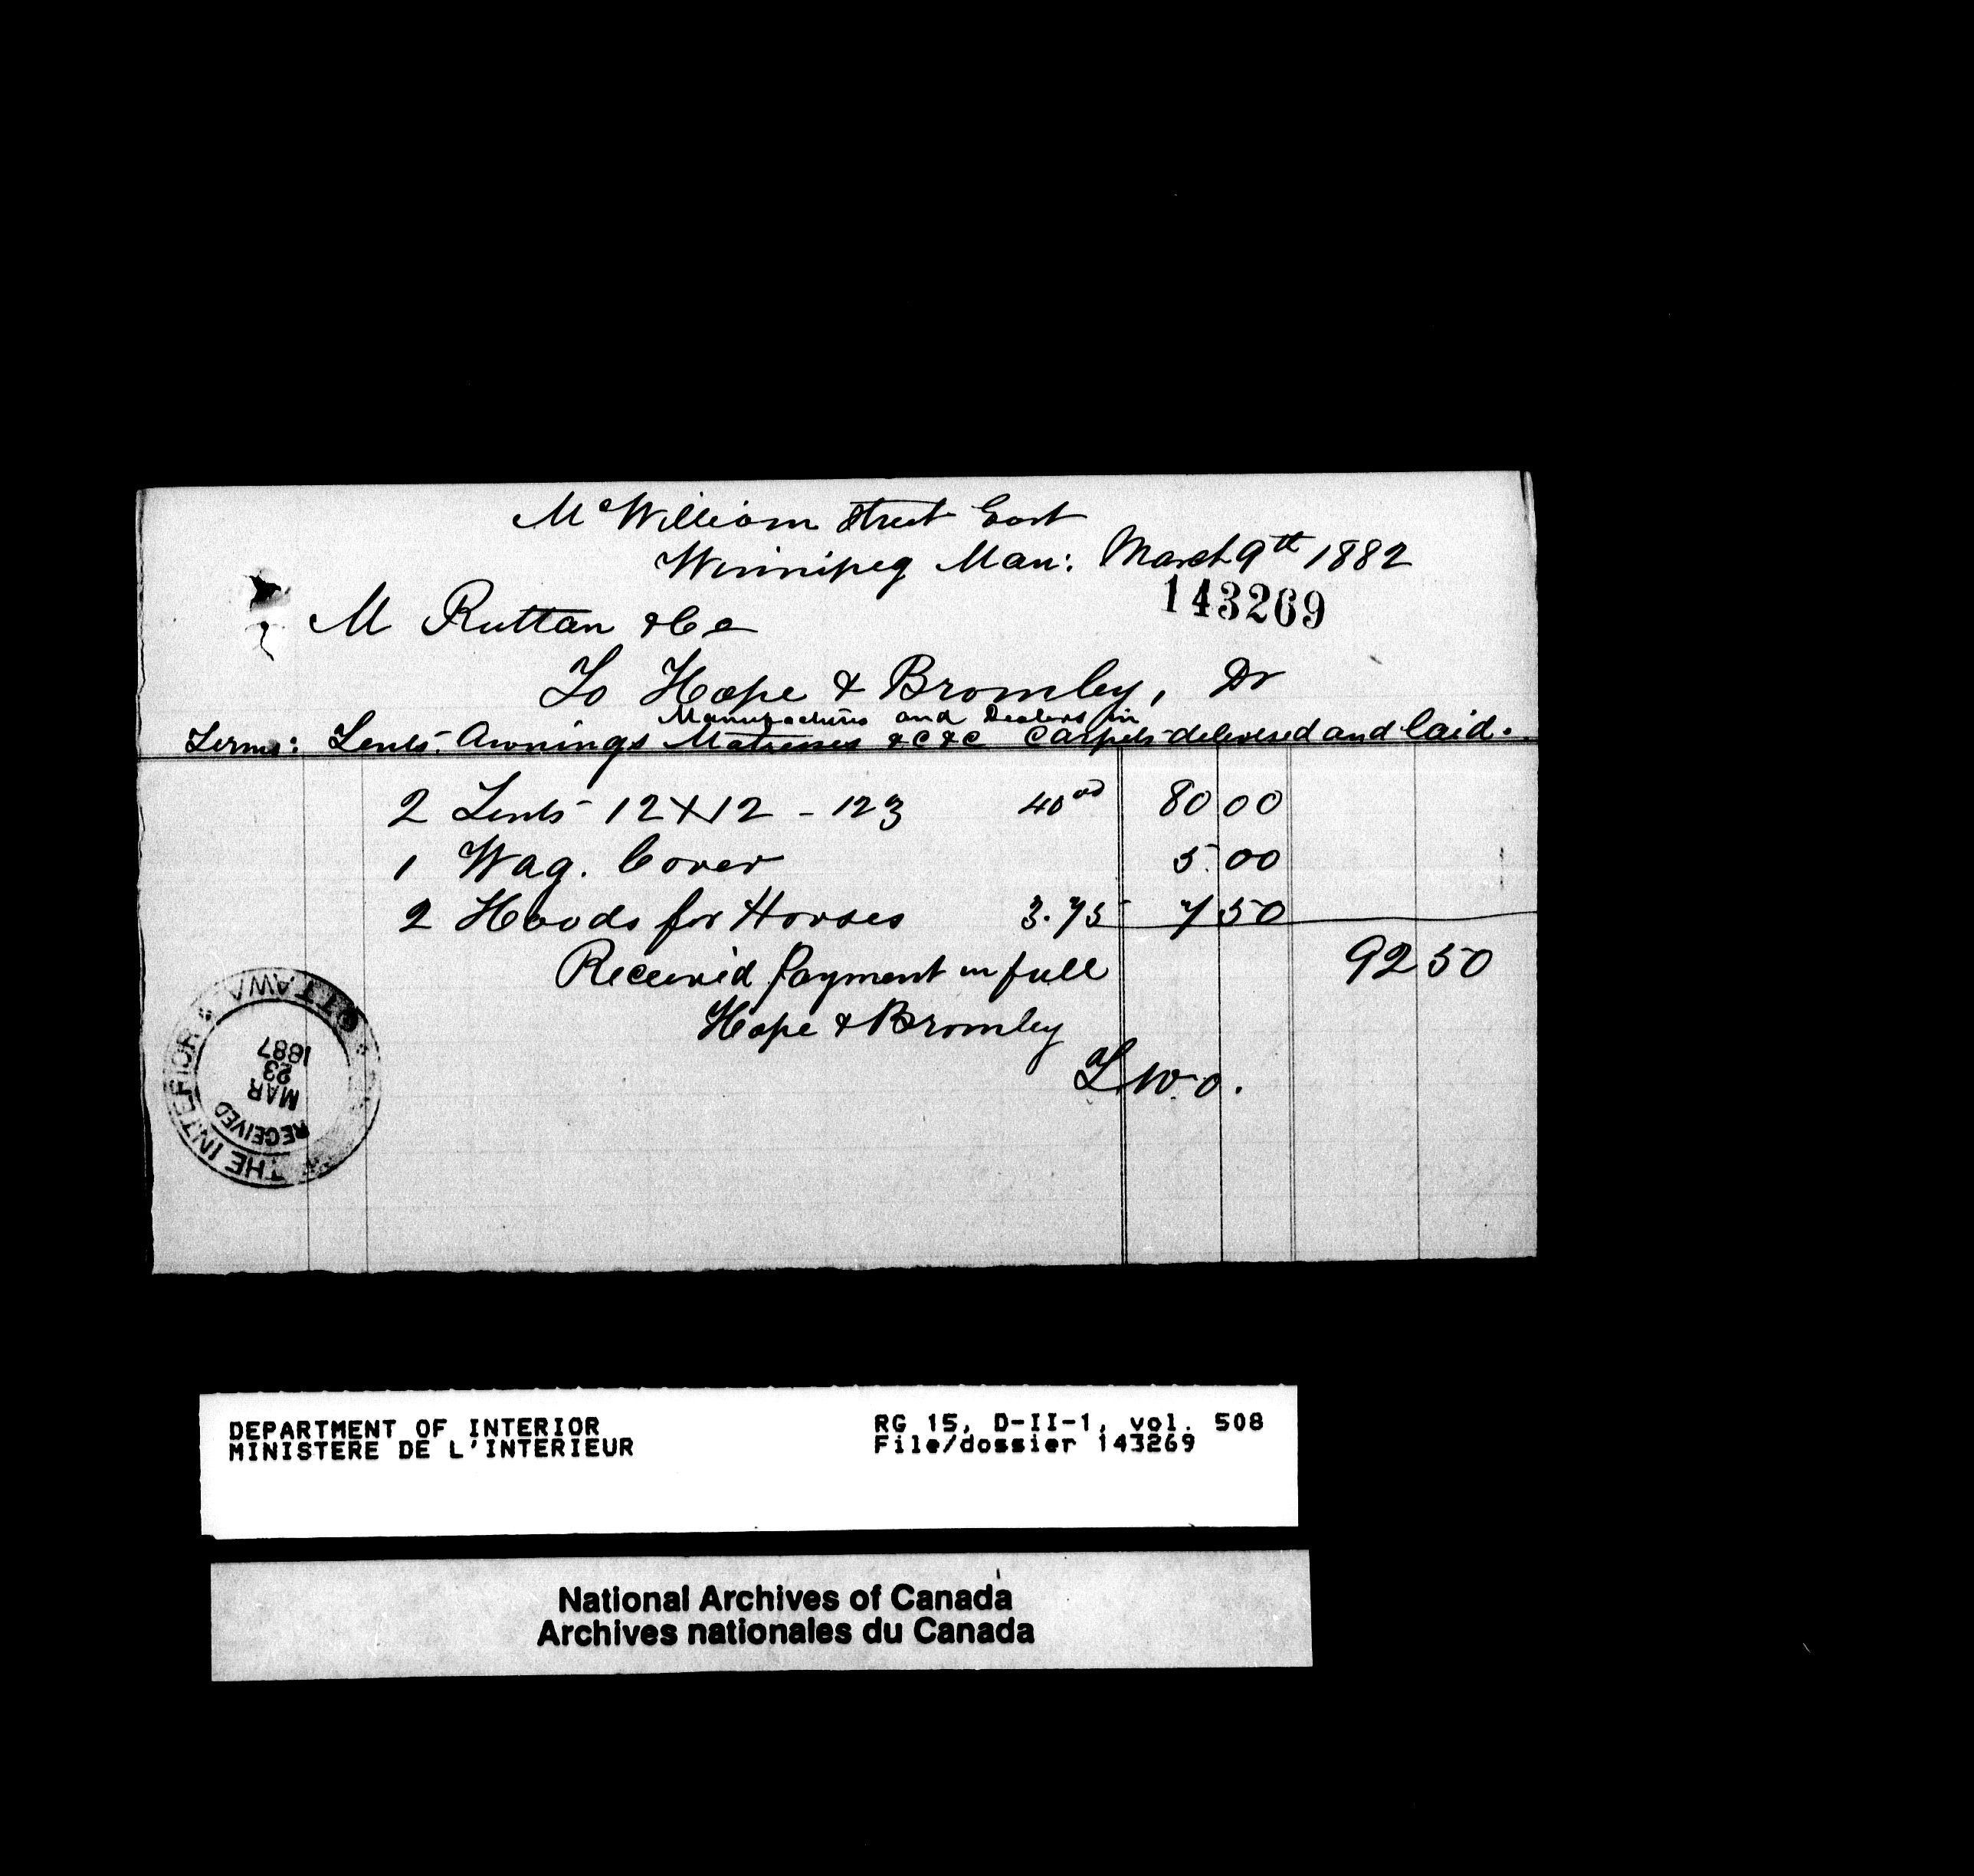 McWilliam Street East
Winnipeg Man: March 9th 1882
143269
M Ruttan & Co
To Hope & Bromley, Dr
Manufacturers and Dealers in
Terms: Tents. Awnings Matresses &C &C Carpets delivered and laid.
2 Tents 12 X 12 - 123 40 00 80 00
1 Wag. Cover 5.00
2 Hoods for Horses 3.75 7 50
Received Payment in full 92 50
Hope & Bromley
OTTAWA
THE INTERIOR
RECEIVED
MAR
23
1887
DEPARTMENT OF INTERIOR
MINISTERE DE L'INTERIEUR
RG 15, D-II-1, vol. 508
File/dossier 143269
National Archives of Canada
Archives nationales du Canada